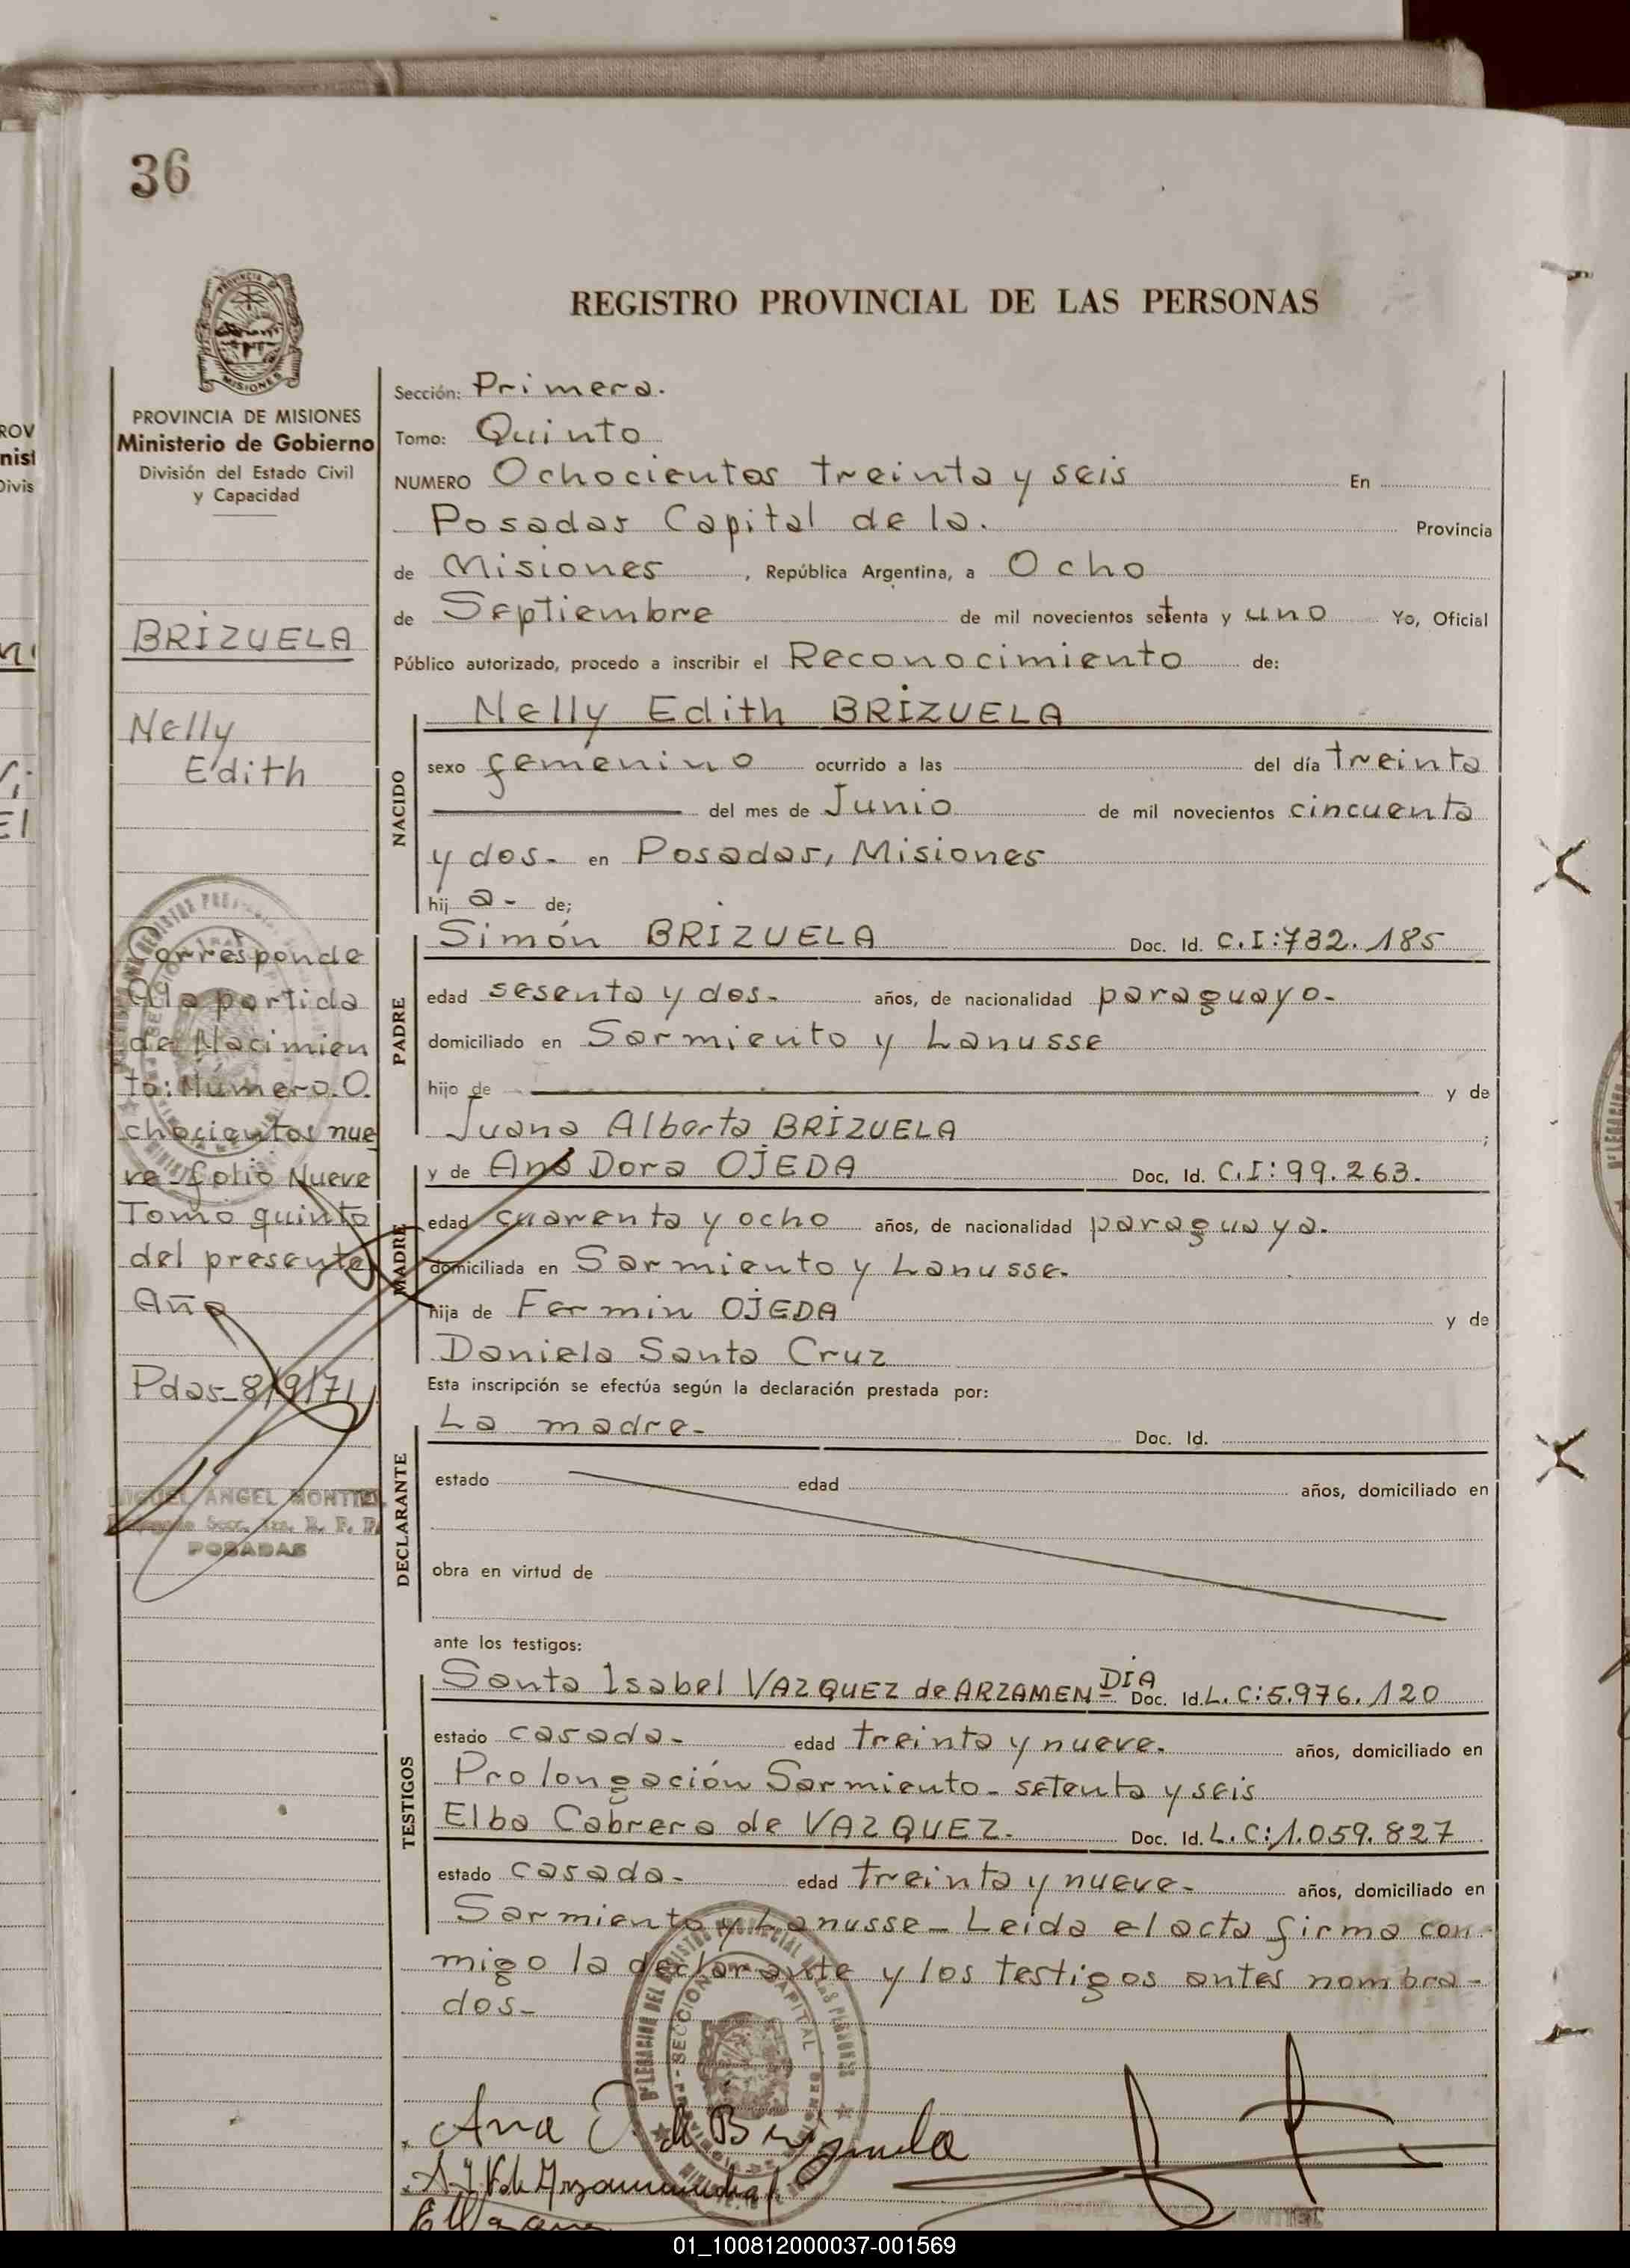 36
REGISTRO PROVINCIAL DE LAS PERSONAS
PROVINCIA DE MISIONES
Ministerio de Gobierno
División del Estado Civil
y Capacidad
BRIZUELA
Nelly
Edith
Corresponde
A la partida
de Nacimien
to: Número. O.
chocientos nue
ve folio Nueve
Tomo quinto
del presente
Año
Pdas_8/9/71
MIGUEL ANGEL MONTIEL
POSADAS
Sección: Primera.
Tomo: Quinto
NUMERO Ochocientos treinta y seis En
Posadas Capital de la. Provincia
de Misiones, República Argentina, a Ocho
de Septiembre de mil novecientos setenta y uno Yo, Oficial
Público autorizado, procedo a inscribir el Reconocimiento de:
NACIDO
Nelly Edith BRIZUELA
sexo femenino ocurrido a las del día treinta
del mes de Junio de mil novecientos cincuenta
y dos- en Posadas, Misiones
hij a- de;
PADRE
Simón BRIZUELA Doc. Id. C.I:732.185
edad sesenta y dos- años, de nacionalidad paraguayo-
domiciliado en Sarmiento y Lanusse
hijo de y de
Juana Alberta BRIZUELA ;
MADRE
y de Ana Dora OJEDA Doc. Id. C.I:99.263.
edad cuarenta y ocho años, de nacionalidad paraguaya.
domiciliada en Sarmiento y Lanusse-
hija de Fermin OJEDA y de
Daniela Santa Cruz
Esta inscripción se efectúa según la declaración prestada por:
DECLARANTE
La madre- Doc. Id.
estado edad años, domiciliado en
obra en virtud de
ante los testigos:
TESTIGOS
Santa Isabel VAZQUEZ de ARZAMENDIA Doc. Id. L.C:5.976.120
estado casada- edad treinta y nueve. años, domiciliado en
Prolongación Sarmiento- setenta y seis
Elba Cabrera de VAZQUEZ- Doc. Id. L.C:1.059.827
estado casada- edad treinta y nueve- años, domiciliado en
Sarmiento y Lanusse- Leida el acta firma con
migo la declarante y los testigos antes nombra-
dos-
Ana O. de Brizuela
01_100812000037-001569